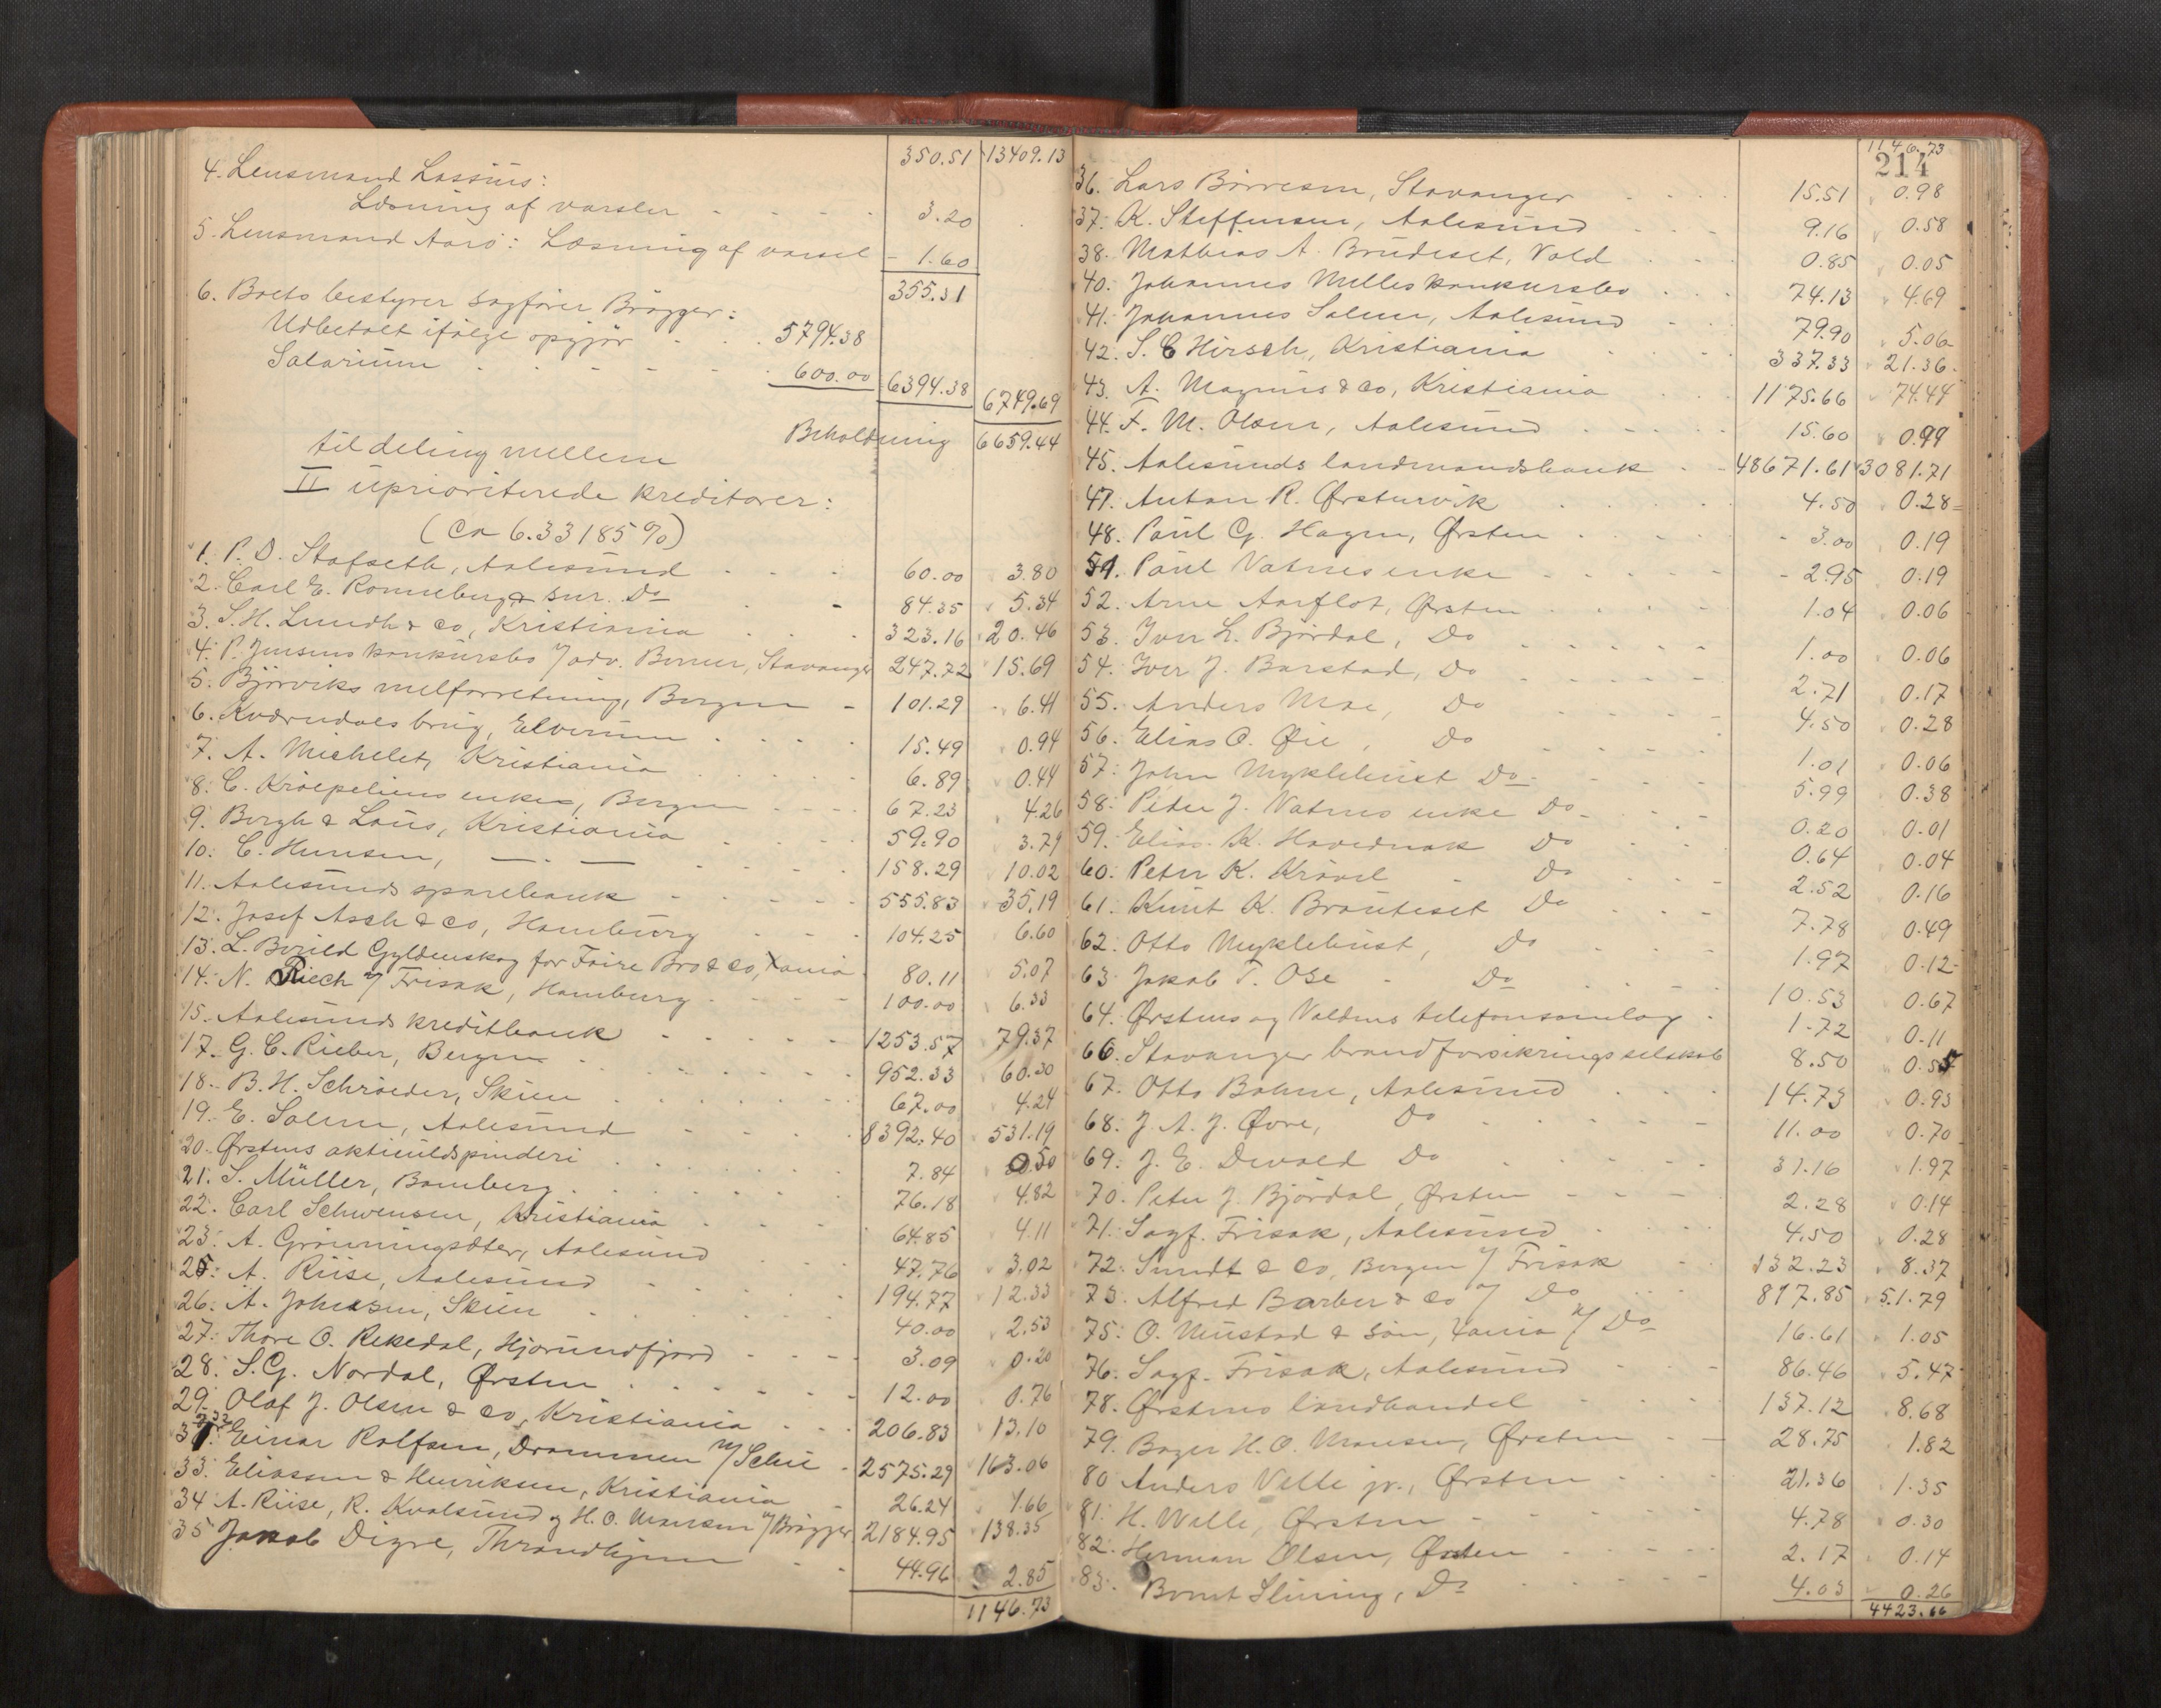 350.51 13409.13
4. Lensmand Lassens:
Læsning af varsler - - - - 3.20
5. Lensmand Aarö: Læsning af varsel - 1.60
355.31
6. Boets bestyrer sagfører Brøgger:
Udbetalt ifølge opgjør - - - 5794.38
Salarium - - - - - 600.00 6394.38 6749.69
Beholdning 6659.44
til deling mellem
II uprioriterede kreditorer:
(ca 6.33185%)
1. P. D. Stafseth, Aalesund - - - 60.00 3.80
2. Carl E. Rønneberg & sør. Do - - 84.35 5.34
3. S. H. Lundh & co, Kristiania - - - 323.16 20.46
4. P. Jensens konkursbo v/ adv. Berner, Stavanger 247.72 15.69
5. Bjørviks melforretning, Bergen - 101.29 6.41
6. Kværndals brug, Elverum - - - - 15.49 0.94
7. A. Michelet, Kristiania - - - - - 6.89 0.44
8. C. Kröepeliens enke, Bergen - - - - 67.23 4.26
9. Bergh & Laus, Kristiania - - - - 59.90 3.79
10. C. Hansen, — . — - - - - - 158.29 10.02
11. Aalesunds sparebank - - - - - 555.83 35.19
12. Josef Asch & co, Hamburg - - - 104.25 6.60
13. L. Borild Gyldenskog for Faire Bro & co, Xania 80.11 5.07
14. N. Riech v/ Frisak, Hamburg - - - - 100.00 6.33
15. Aalesunds kreditbank - - - - - 1253.57 79.37
17. G. C. Rieber, Bergen - - - - - - 952.33 60.30
18. B. H. Schrøeder, Skien - - - - - - 67.00 4.24
19. E. Solem, Aalesund - - - - 8392.40 531.19
20. Ørstens aktieuldspinderi - - - - - - 7.84 0.50
21. S. Müller, Bamberg - - - - - - 76.18 4.82
22. Carl Schwensen, Kristiania - - - 64.85 4.11
23. A. Grønningsæter, Aalesund - - - 47.76 3.02
25. A. Riise, Aalesund - - - - - 194.77 12.33
26. A. Johnsen, Skien - - - - - - 40.00 2.53
27. Thore O. Rekedal, Hjørundfjord - - - - 3.09 0.20
28. S. G. Nordal, Ørsten - - - - - - 12.00 0.76
29. Olaf J. Olsen & co, Kristiania - - - 206.83 13.10
31. Einar Rolfsen, Drammen v/ Schie - 2575.29 163.06
33. Eliassen & Henriksen, Kristiania - 26.24 1.66
34 A. Riise, R. Kvalsund og H. O. Mansen v/ Brøgger 2184.95 138.35
35 Jakob Digre, Throndhjem - - 44.96 2.85
1146.73
1146.73
214
36. Lars Börresen, Stavanger - - - - 15.51 0.98
37. K. Steffensen, Aalesund - - - 9.16 0.58
38. Mathias A. Brudeset, Vold - - - 0.85 0.05
40. Johannes Melles konkursbo - - - 74.13 4.69
41. Johannes Solem, Aalesund - - - 79.90 5.06
42. S. C Hirsch, Kristiania - - - - 337.33 21.36
43. A. Magnus & co, Kristiania - - - 1175.66 74.44
44. F. M. Olsen, Aalesund - - - - - 15.60 0.99
45. Aalesunds landmandsbank - - 48671.61 3081.71
47. Anton R. Ørstenvik - - - - - 4.50 0.28
48. Paul G. Hagen, Ørsten - - - - - 3.00 0.19
51. Paul Vatnes enke - - - - - - 2.95 0.19
52. Arne Aarflot, Ørsten - - - - - 1.04 0.06
53. Iver L. Bjørdal, Do - - - - - - 1.00 0.06
54. Iver J. Barstad, Do - - - - - - 2.71 0.17
55. Anders Moe, Do - - - - - 4.50 0.28
56. Elias O. Øie, Do - - - - 1.01 0.06
57. John Myklebust Do - - - - 5.99 0.38
58. Peter J. Vatnes enke Do - - - - 0.20 0.01
59. Elias K. Hovednak Do - - - 0.64 0.04
60. Peter K. Krøvel - Do - - - 2.52 0.16
61. Knut K. Brauteset Do - - - 7.78 0.49
62. Otto Myklebust, Do - - - 1.97 0.12
63. Jakob T. Ose - Do - - - - 10.53 0.67
64. Ørstens og Voldens telefonsamlag - 1.72 0.11
66. Stavanger brandforsikringsselskab 8.50 0.55
67. Otto Bohne, Aalesund - - - 14.73 0.93
68. J. A. J. Øvre, Do - - - - - 11.00 0.70
69. J. E. Devold Do - - - - - 31.16 1.97
70. Peter J. Bjørdal, Ørsten - - - - 2.28 0.14
71. Sagf. Frisak, Aalesund - - - - 4.50 0.28
72. Sundt & Co, Bergen v/ Frisak - 132.23 8.37
73. Alfred Barber & Co v/ Do - - - 817.85 51.79
75. O. Mustad & søn, Xania v/ Do 16.61 1.05
76. Sagf. Frisak, Aalesund - - - 86.46 5.47
78. Ørstens landhandel - - - - 137.12 8.68
79. Bager H. O. Mansen, Ørsten - - 28.75 1.82
80 Anders Velle jr., Ørsten - - - - 21.36 1.35
81. H. Welle, Ørsten - - - - - 4.78 0.30
82. Herman Olsen, Ørsten - - - - - 2.17 0.14
83. Bernt Slining, Do - - - - - 4.03 0.26
4423.66